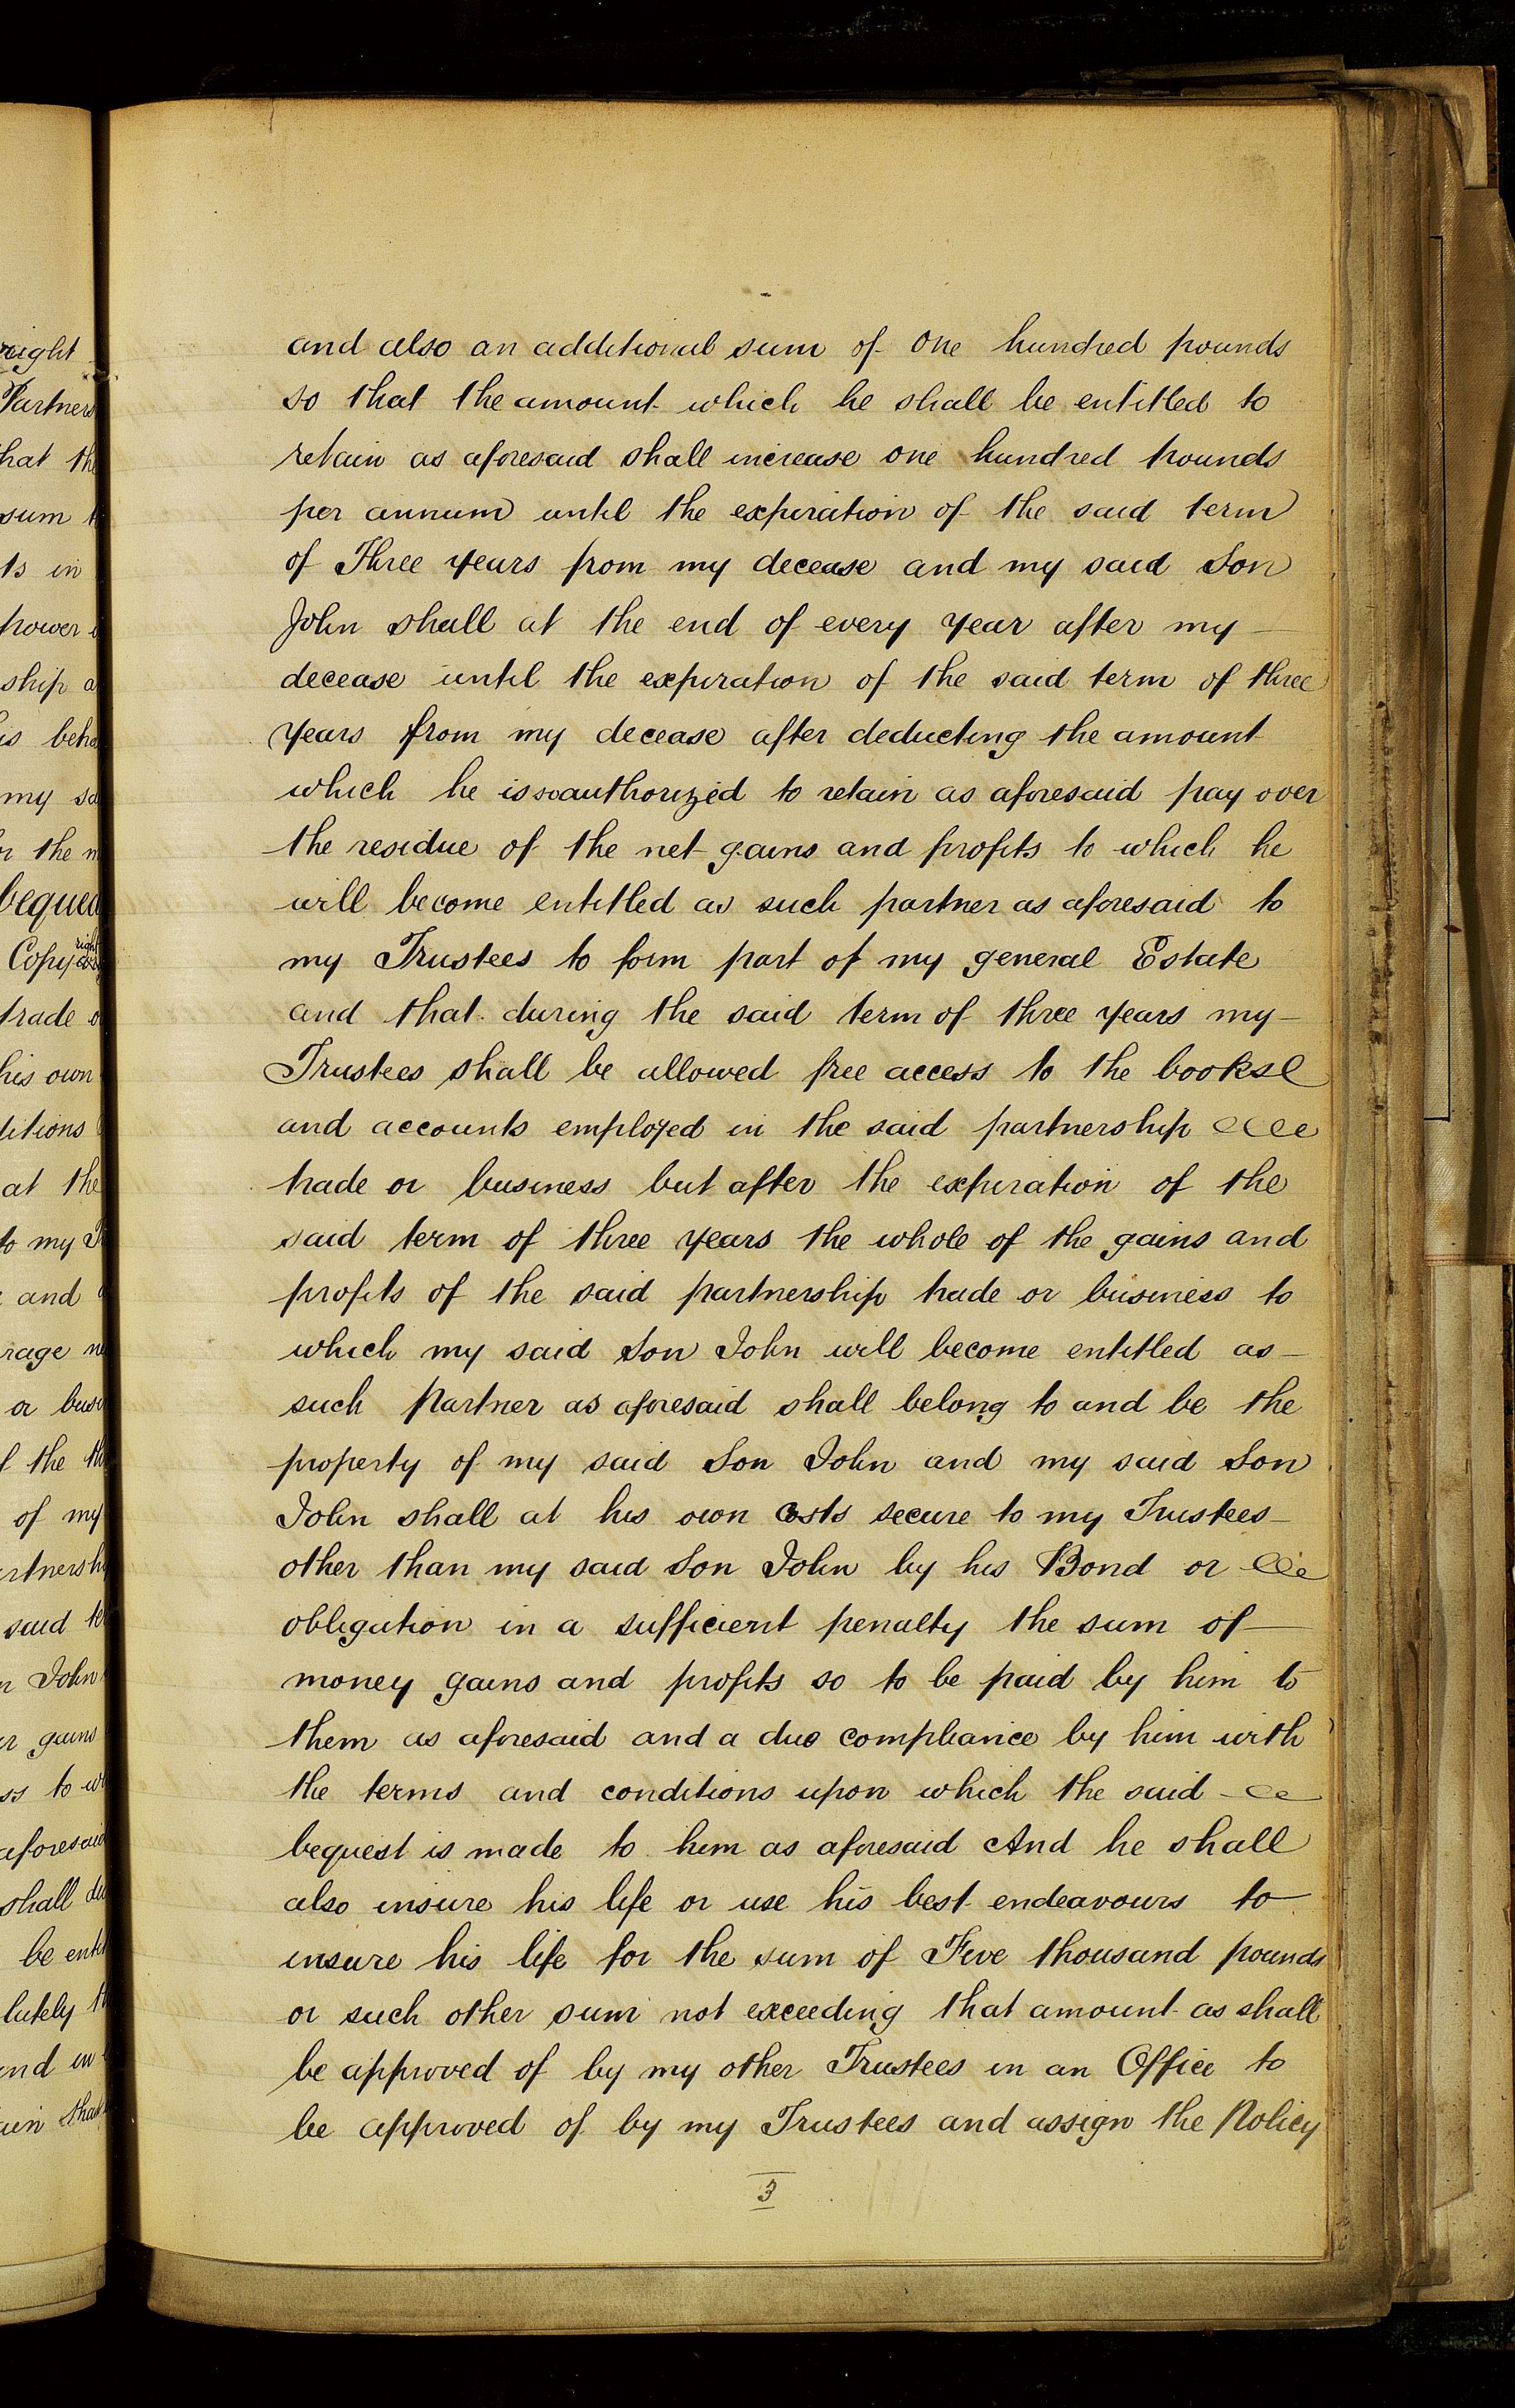 and also an additional sum of One hundred pounds
so that the amount which he shall be entitled to
retain as aforesaid shall increase one hundred pounds
per annum until the expiration of the said term
of Three years from my decease and my said Son
John shall at the end of every year after my
decease until the expiration of the said term of three
years from my decease after deducting the amount
which he is so authorized to retain as aforesaid pay over
the residue of the net gains and profits to which he
will become entitled as such partner as aforesaid to
my Trustees to form part of my general Estate
and that during the said term of three years my
Trustees shall be allowed free access to the books
and accounts employed in the said partnership
trade or business but after the expiration of the
said term of three years the whole of the gains and
profits of the said partnership trade or business to
which my said Son John will become entitled as
such Partner as aforesaid shall belong to and be the
property of my said Son John and my said Son
John shall at his own costs secure to my Trustees
other than my said Son John by his Bond or
obligation in a sufficient penalty the sum of
money gains and profits so to be paid by him to
them as aforesaid and a due compliance by him with
the terms and conditions upon which the said
bequest is made to him as aforesaid And he shall
also insure his life or use his best endeavours to
insure his life for the sum of Five thousand pounds
or such other sum not exceeding that amount as shall
be approved of by my other Trustees in an Office to
be approved of by my Trustees and assign the Policy
3